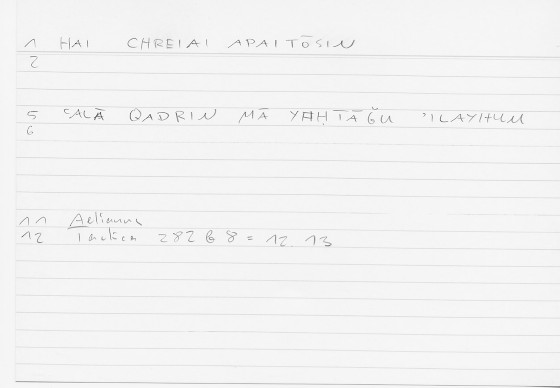 1 HAI CHREIAI APAITŌSIN
2
5 ʿALĀ QADRIN MĀ YAḤTĀǦU 'ILAYHIM
6
11 Aelianus
12 Tactica 282 B 8 = 12. 13